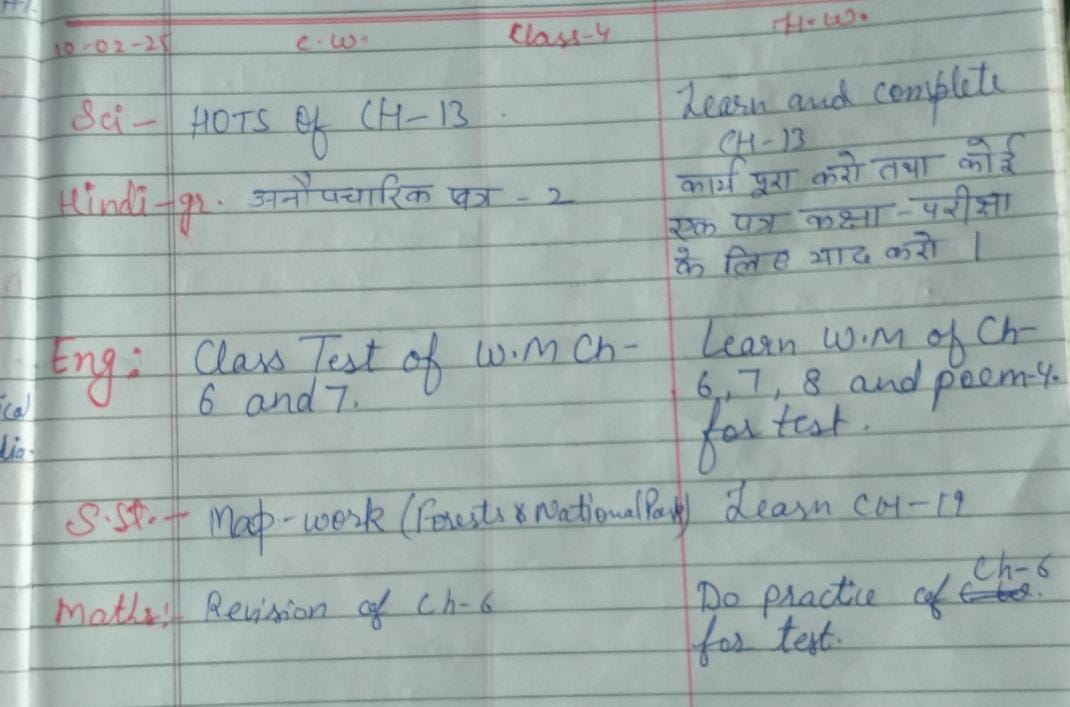 10-02-25 C.W. Class-4 H.W.
Sci- HOTS Of CH-13. Learn and complete
CH-13
Hindi-gr. अनौपचारिक पत्र - 2 कार्य पूरा करो तथा कोई
एक पत्र कक्षा-परीक्षा
के लिए याद करो ।
Eng: Class Test of W.M Ch- Learn W.M of Ch-
6 and 7. 6, 7, 8 and poem-4.
for test.
S.St.- Map-work (Forests & National Park) Learn CH-19
Ch-6
Maths:- Revision of Ch-6 Do practice of
for test.